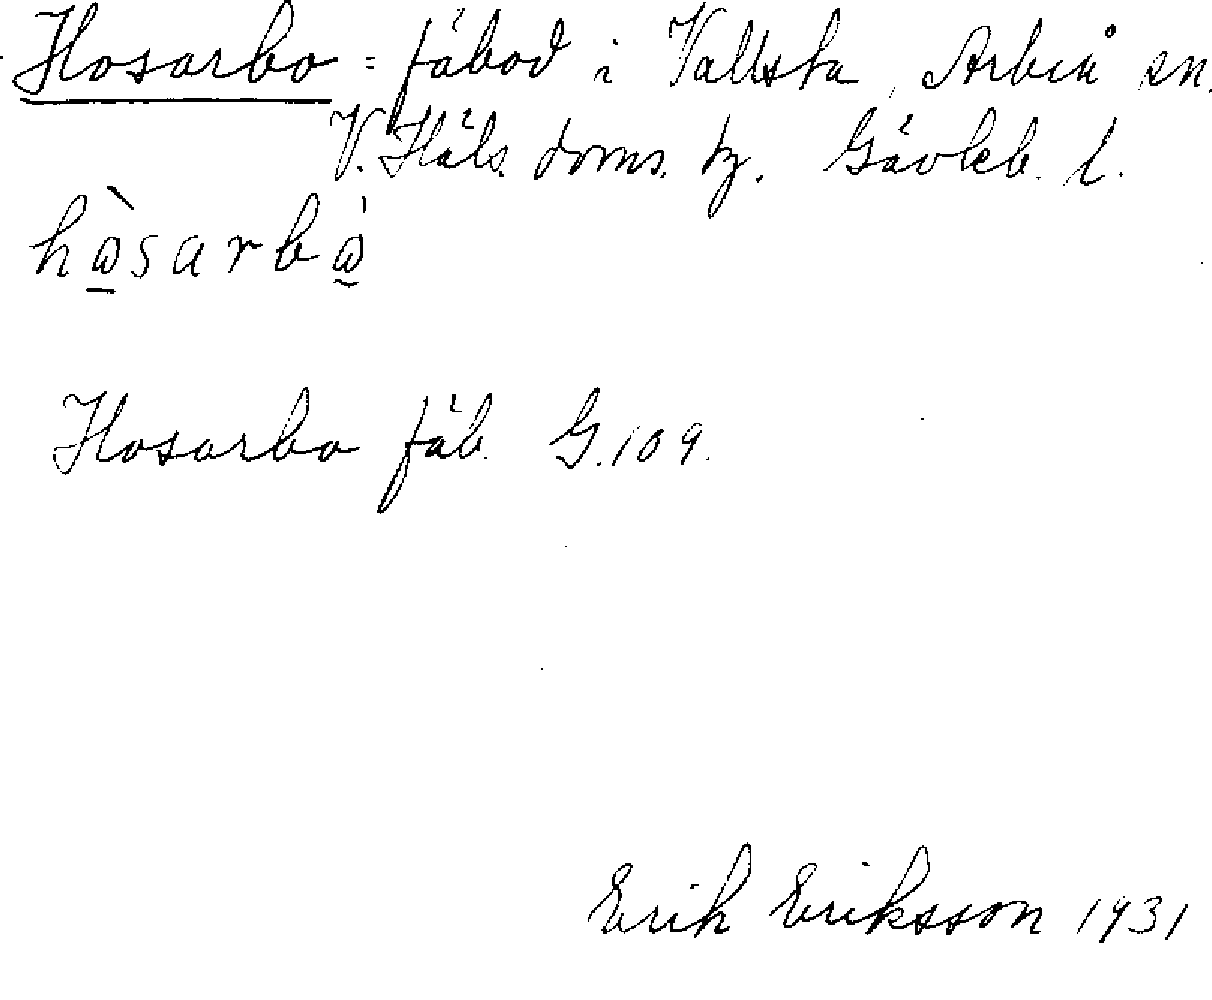 Hosarbo = fäbod i Vallsta, Arbrå sn.
V. Häls. doms. tg. Gävleb. l.
hὼsarbὼ
Hosarbo fäb. G.109.
Erik Eriksson 1931